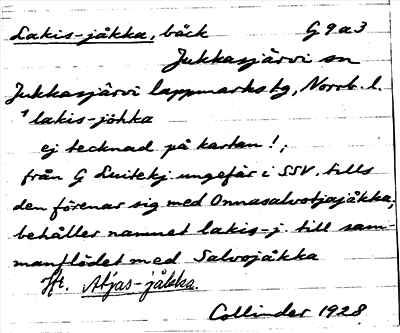 Lakis-jåkka, bäck G 9 a 3
Jukkasjärvi sn
Jukkasjärvi lappmarks tg, Norrb. l.
¹lakis-johka
ej tecknad på kartan!;
från G Luitekj ungefär i SSV. tills
den förenar sig med Onnasalvotjajåkka;
behåller namnet lakis-j. till sam-
manflödet med Salvojåkka
Jfr. Atjas-jåkka.
Collinder 1928